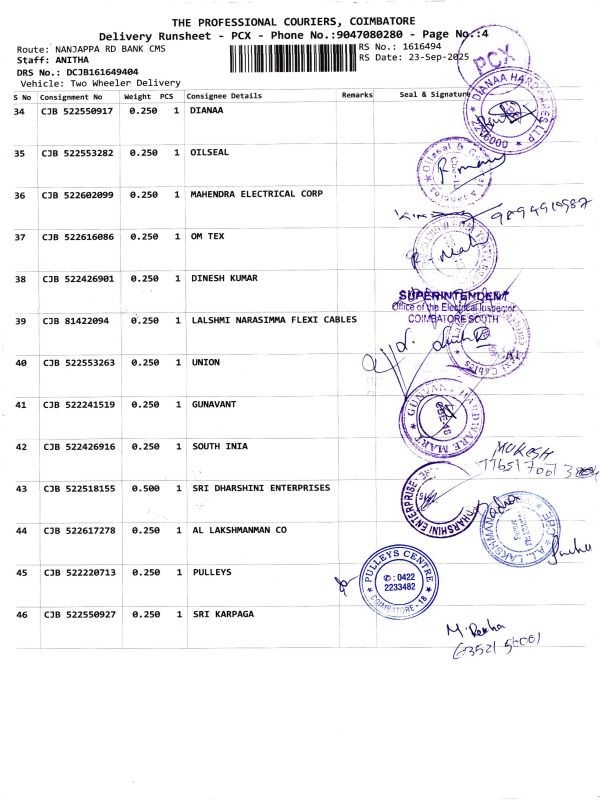 THE PROFESSIONAL COURIERS, COIMBATORE
Delivery Runsheet - PCX - Phone No.:9047080280 - Page No.:4
Route: NANJAPPA RD BANK CMS
RS No.: 1616494
Staff: ANITHA
RS Date: 23-Sep-2025
DRS No.: DCJB161649404
Vehicle: Two Wheeler Delivery
PCX
S No Consignment No Weight PCS Consignee Details Remarks Seal & Signature
34 CJB 522550917 0.250 1 DIANAA
DIANAA HARDWARES LLP
2216000
35 CJB 522553282 0.250 1 OILSEAL
Oilseal &
36 CJB 522602099 0.250 1 MAHENDRA ELECTRICAL CORP
9894910987
37 CJB 522616086 0.250 1 OM TEX
38 CJB 522426901 0.250 1 DINESH KUMAR
SUPERINTENDENT
Office of the Electrical Inspector
COIMBATORE SOUTH
39 CJB 81422094 0.250 1 LALSHMI NARASIMMA FLEXI CABLES
40 CJB 522553263 0.250 1 UNION
41 CJB 522241519 0.250 1 GUNAVANT
GUNVANT HARDWARE MART
42 CJB 522426916 0.250 1 SOUTH INIA
MUKESH
43 CJB 522518155 0.500 1 SRI DHARSHINI ENTERPRISES
DHARSHINI ENTERPRISE
44 CJB 522617278 0.250 1 AL LAKSHMANMAN CO
A.L. LAKSHMANAN
45 CJB 522220713 0.250 1 PULLEYS
PULLEYS CENTRE
✆: 0422
2233482
COIMBATORE - 18
46 CJB 522550927 0.250 1 SRI KARPAGA
M. Rekha